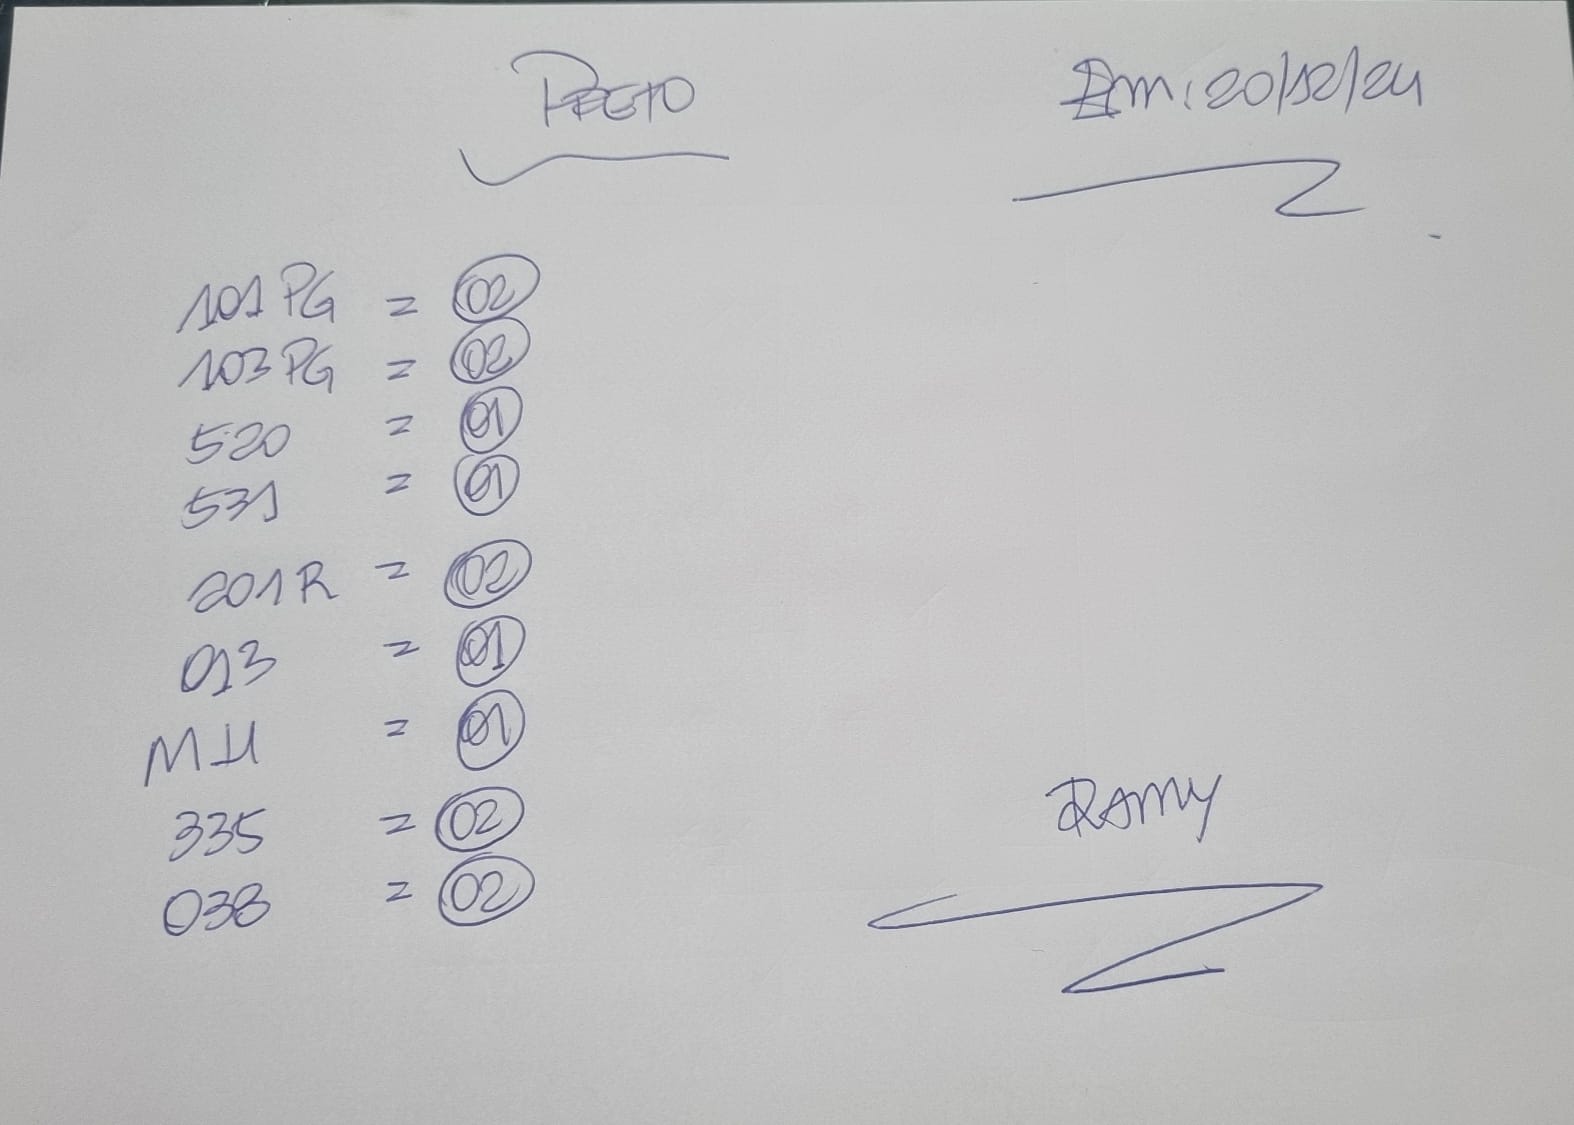 PRETO
Em: 20/12/24
101 PG = 02
103 PG = 02
520 = 01
531 = 01
201 R = 02
013 = 01
= 01
335 = 02
038 = 02
RAMY